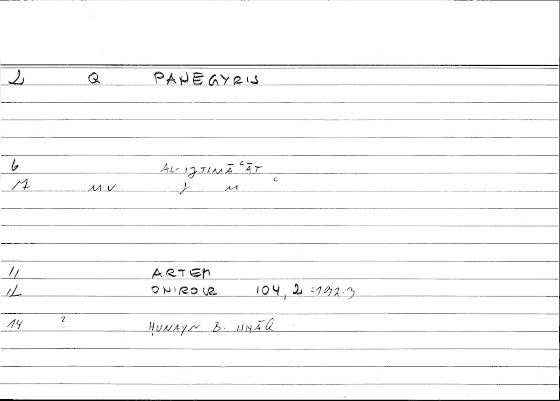 2 Q PANEGYRIS
6 AL-IǦTIMĀʿĀT
11 ARTEM
12 ONIROCR 104, 2 = 192.3
14 ? ḤUNAYN B. ISḤĀQ